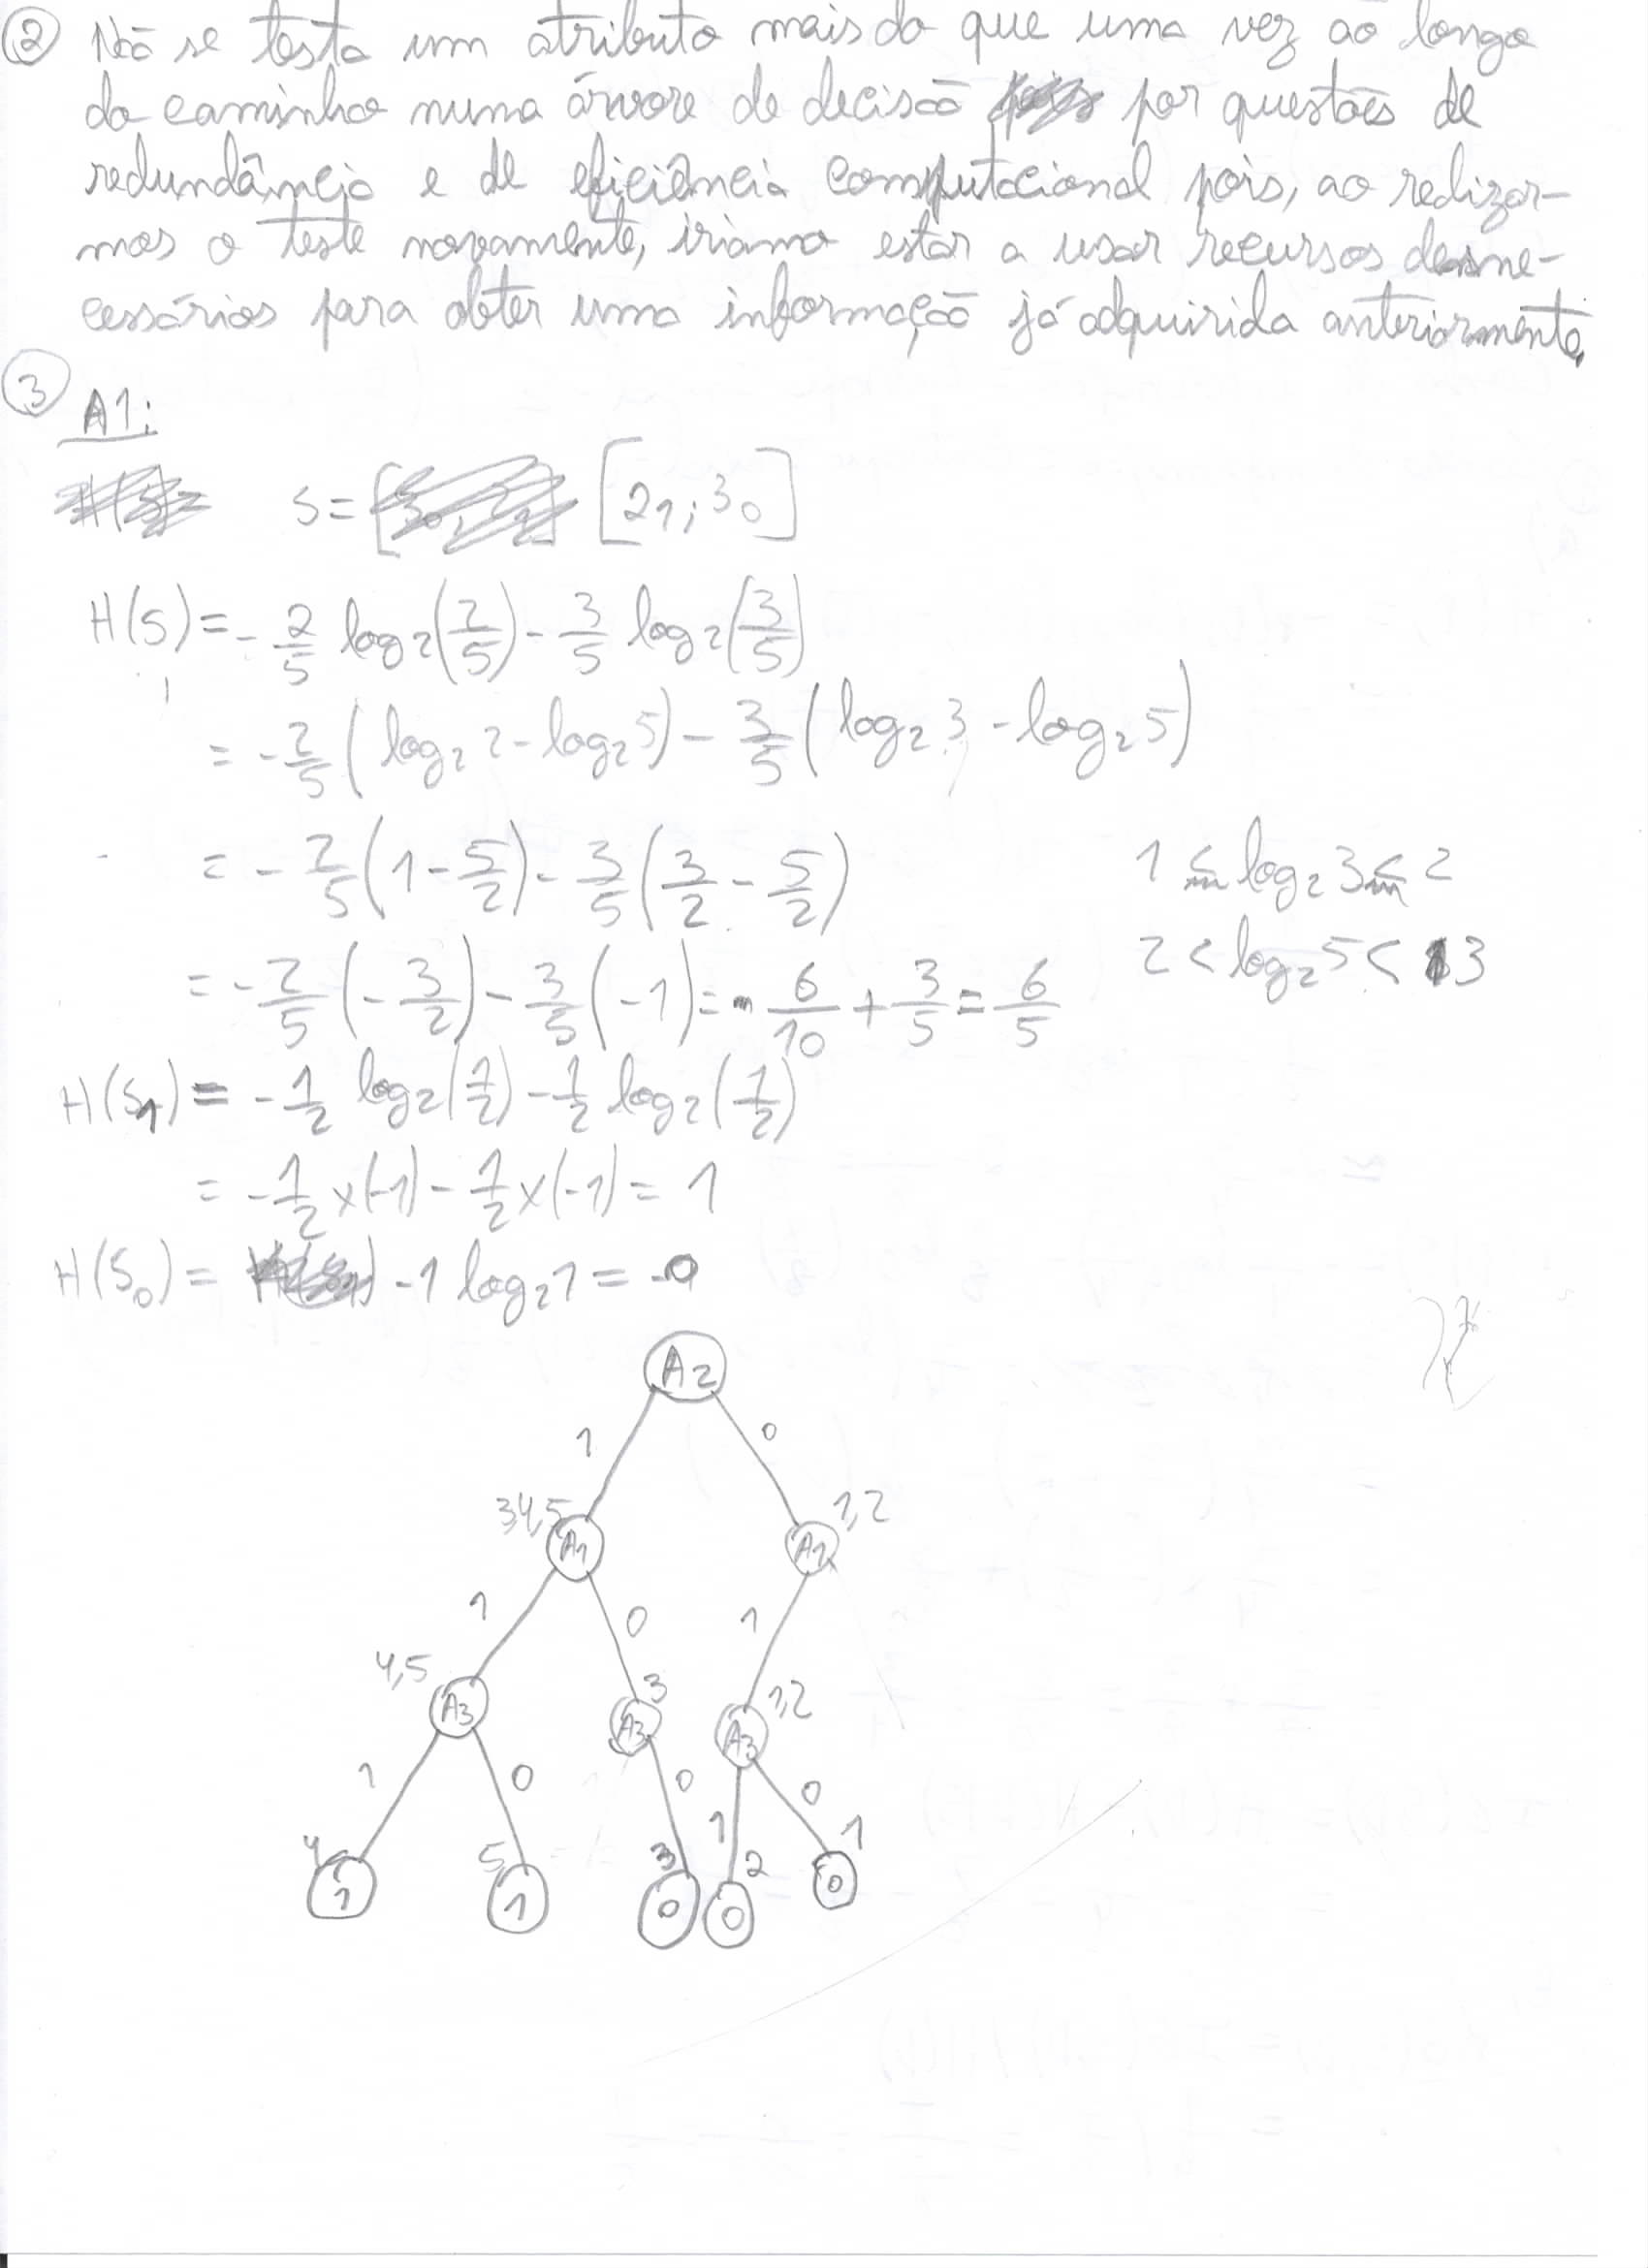 ② Não se testa um atributo mais do que uma vez ao longo
do caminho numa árvore de decisão por questões de
redundância e de eficiência computacional pois, ao realizar-
mos o teste novamente, iriamo estar a usar recursos desne-
cessários para obter uma informação já adquirida anteriormente.
③ A1:
S = [2₁; 3₀]
H(S) = - 2/5 log₂(2/5) - 3/5 log₂(3/5)
= - 2/5 (log₂ 2 - log₂ 5) - 3/5 (log₂ 3 - log₂ 5)
= - 2/5 (1 - 5/2) - 3/5 (3/2 - 5/2)
1 ≤ log₂ 3 ≤ 2
= - 2/5 (- 3/2) - 3/5 (-1) = 6/10 + 3/5 = 6/5
2 < log₂ 5 < 3
H(S₁) = - 1/2 log₂(1/2) - 1/2 log₂(1/2)
= - 1/2 × (-1) - 1/2 × (-1) = 1
H(S₀) = -1 log₂ 1 = 0
A2
1 0
3,4,5 1,2
A1 A1
1 0 1
4,5 3 1,2
A3 A3 A3
1 0 0 1 0
4 5 3 2 1
1 1 0 0 0